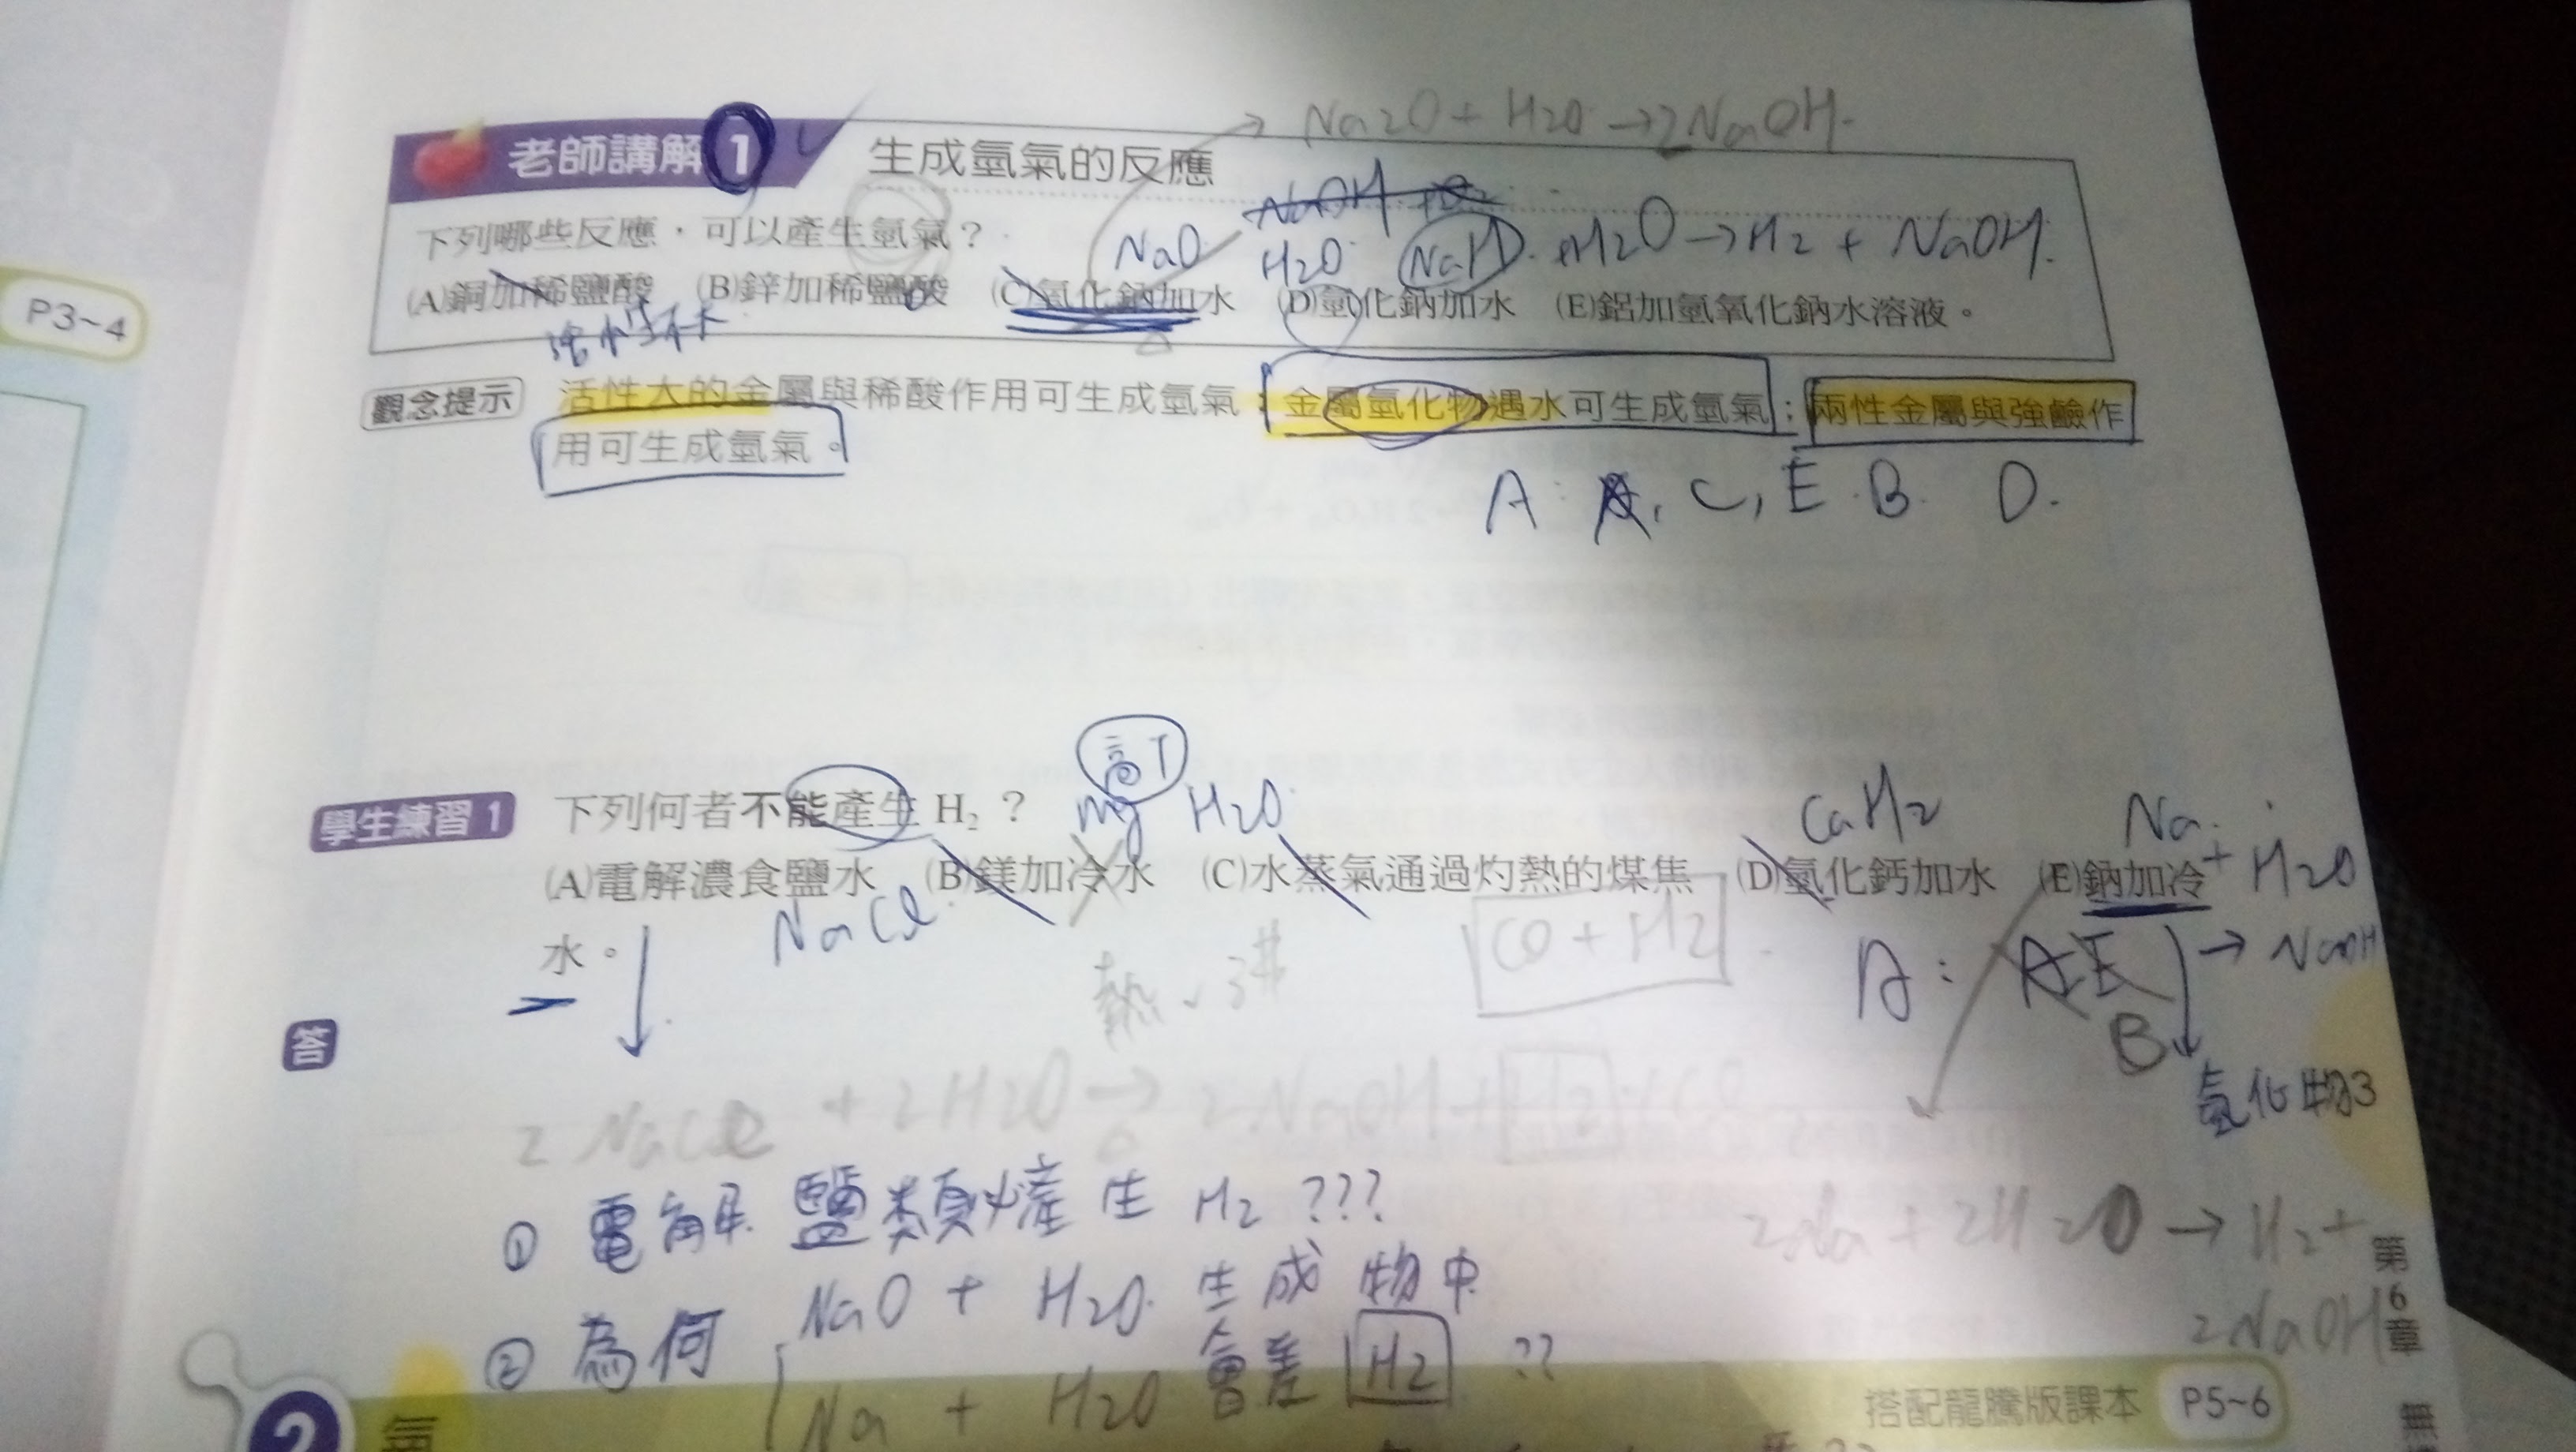 Na2O + H2O → 2NaOH.
老師講解 1 生成氫氣的反應
NaOH
下列哪些反應，可以產生氫氣？
NaO H2O NaH. + H2O → H2 + NaOH.
(A)銅加稀鹽酸 (B)鋅加稀鹽酸 (C)氧化鈉加水 (D)氫化鈉加水 (E)鋁加氫氧化鈉水溶液。
觀念提示 活性大的金屬與稀酸作用可生成氫氣；金屬氫化物遇水可生成氫氣；兩性金屬與強鹼作
用可生成氫氣。
P3~4
A: A, C, E. B. D.
高T
學生練習 1 下列何者不能產生 H2？ Mg H2O CaH2 Na
(A)電解濃食鹽水 (B)鎂加冷水 (C)水蒸氣通過灼熱的煤焦 (D)氫化鈣加水 (E)鈉加冷 + H2O
水。 NaCl CO + H2 A: A.E → NaOH
B
答
2 NaCl + 2H2O → 2NaOH + H2
① 電解 鹽類 產生 H2 ???
2Na + 2H2O → H2 +
2NaOH
② 為何 NaO + H2O 生成物中
Na + H2O 會差 H2 ??
第6章 無
搭配龍騰版課本 P5~6
2